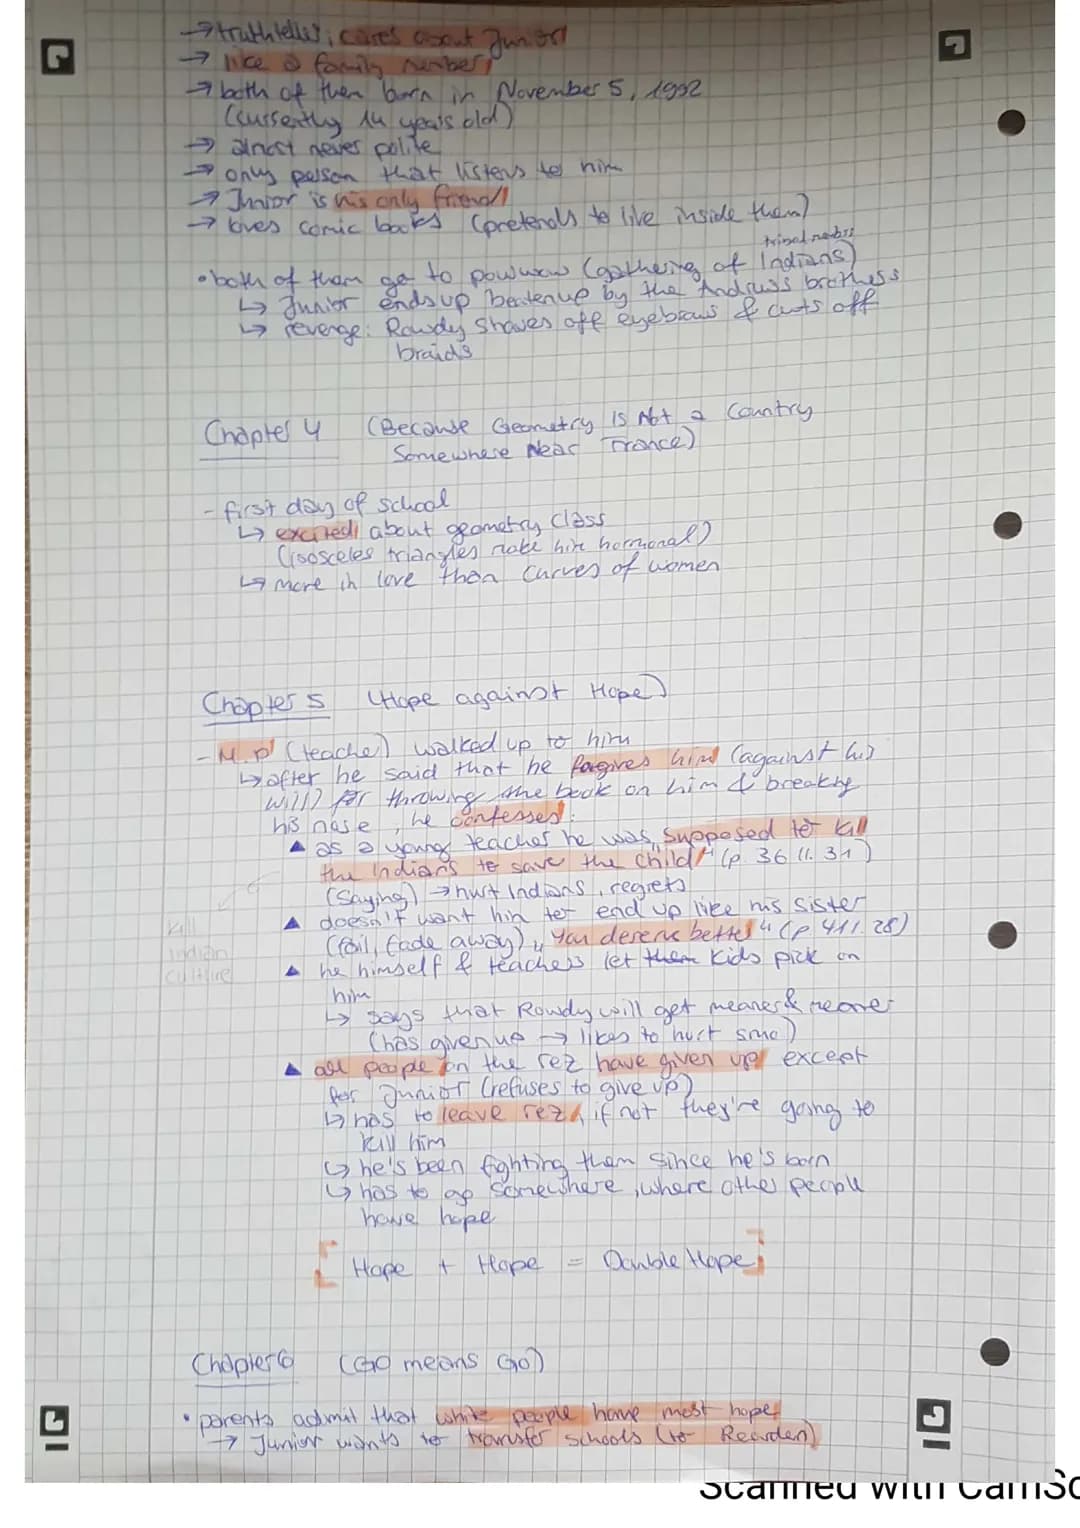 → truthteller; cares about Junior
→ like a family member
→ both of them born in November 5, 1992
(currently 14 years old)
→ almost never polite
→ only person that listens to him
→ Junior is his only friend
→ loves comic books (pretends to live inside them)
tribal
• both of them go to powwow (gathering of Indians)
↳ Junior ends up beaten up by the Andrus's brothers
↳ revenge: Rowdy shaves off eyebrows & cuts off
braids
Chapter 4 (Because Geometry Is Not a Country
Somewhere Near France)
- first day of school
↳ excited about geometry class
(isosceles triangles make him hormonal)
↳ more in love than curves of women
Chapter 5 (Hope against Hope)
- Mr. P (teacher) walked up to him
↳ after he said that he forgives him (against his
will) for throwing the book on him & breaking
his nose, he confesses:
▲ as a young teacher he was "supposed to kill
the Indians to save the child" (p. 36 ll. 31)
(Saying) → hurt Indians, regrets
▲ doesn't want him to end up like his sister
(fail, fade away) "You deserve better" (p. 41 l. 28)
kill
Indian
culture
▲ he himself & teachers let them kids pick on
him
↳ says that Rowdy will get meaner & meaner
(has given up → likes to hurt smo)
▲ all people on the rez have given up except
for Junior (refuses to give up)
↳ has to leave rez, if not they're going to
kill him
↳ he's been fighting them since he's born
↳ has to go somewhere, where other people
have hope
[ Hope + Hope = Double Hope ]
Chapter 6 (Go means Go)
• parents admit that white people have most hope
→ Junior wants to transfer schools (to Reardan)
Scanned with CamSc